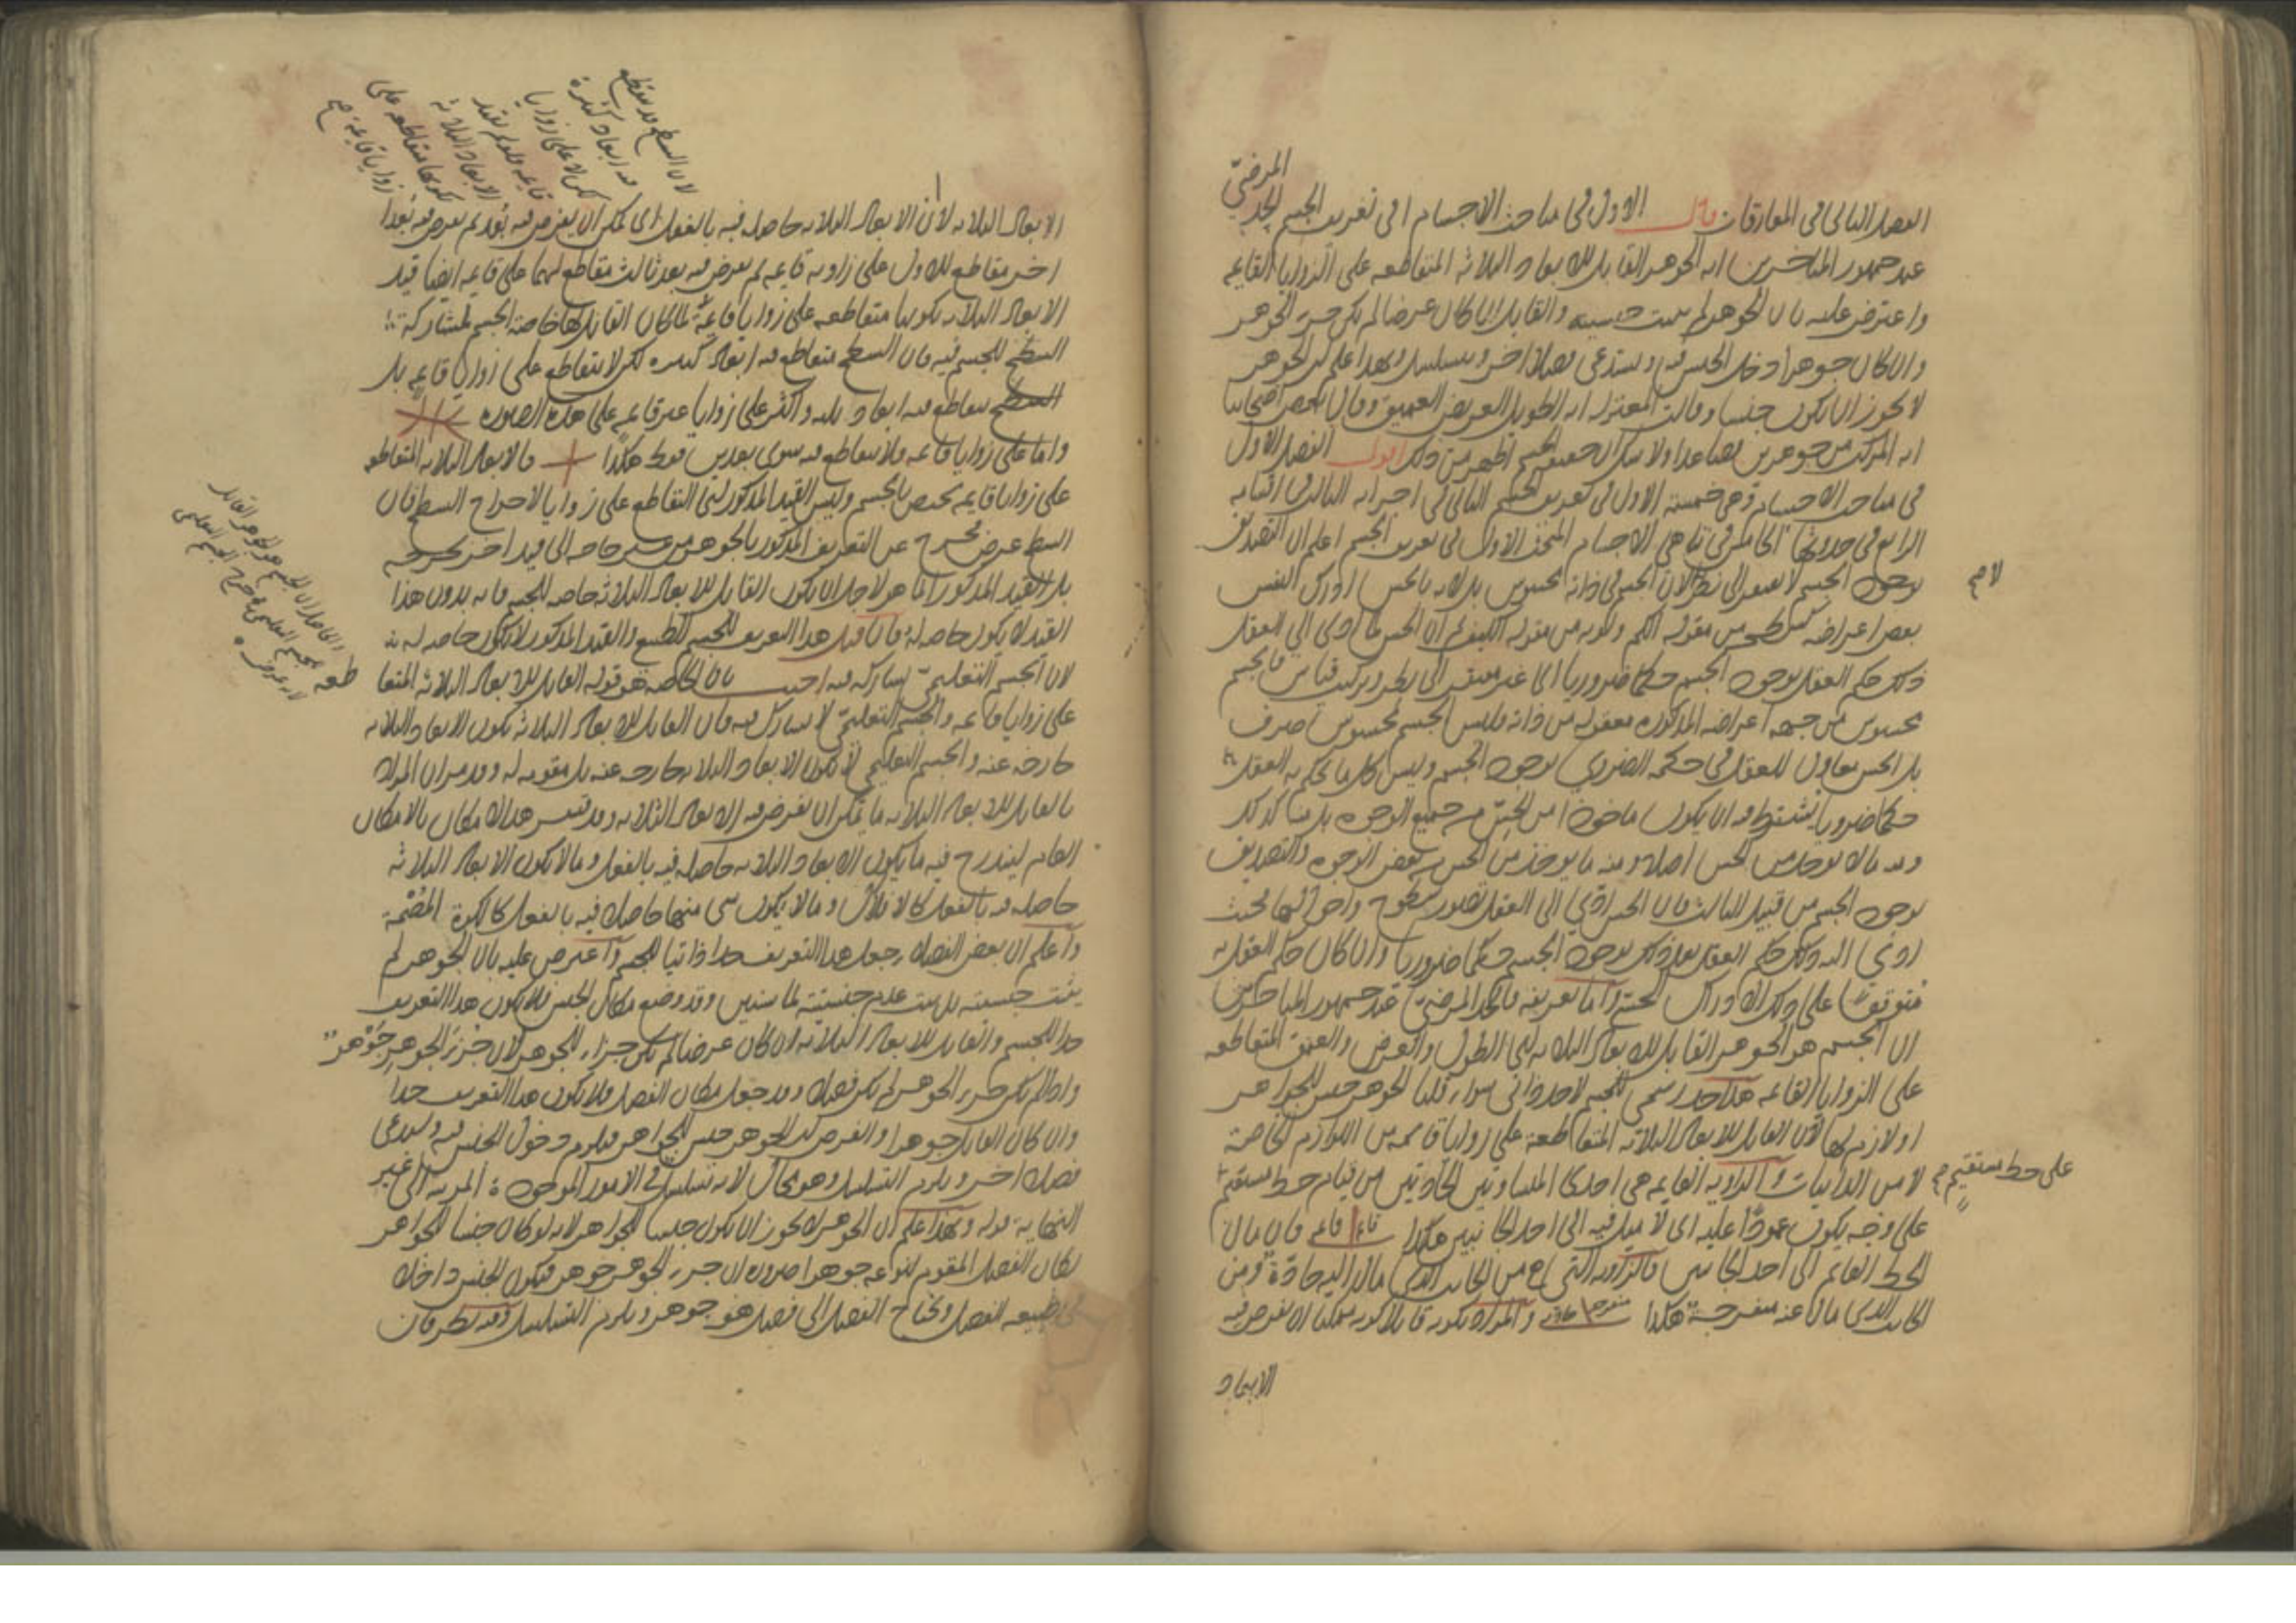 المرضي
الفصل الثاني في المفارقات قال الاول في مباحث الاجسام ا في تعريف الجسم الحد
عند جمهور المتاخرين انه الجوهر القابل للابعاد الثلاثة المتقاطعة على الزوايا القايمة
واعترض عليه بان الجوهر لم يثبت جنسيته والقابل ان كان عرضا لم يكن جزء الجوهر
وان كان جوهرا دخل الجنس فيه ويستدعى فصلا اخر ويتسلسل وبهذا علم ان الجوهر
لا يجوز ان يكون جنسا وقالت المعتزلة انه الطويل العريض العميق وقال بعض اصحابنا
انه المركب من جوهرين فصاعدا ولا شك ان حقيقة الجسم اظهر من ذلك اقول الفصل الاول
في مباحث الاجسام وهي خمسة الاول في تعريف الجسم الثاني في اجزايه الثالث في اقسامه
الرابع في حدوثها الخامس في تناهي الاجسام المبحث الاول في تعريف الجسم اعلم ان التصديق
بوجود الجسم لا يفتقر الى نظر لان الجسم في ذاته محسوس بل لانه بالحس ادرك النفس
لا صح
بعض اعراضه كسطحه من مقولة الكم ولونه من مقولة الكيف ثم ان الحس لما ادى الى العقل
ذلك حكم العقل بوجود الجسم حكما ضروريا اى غير مفتقر الى نظر وتركيب قياس فالجسم
محسوس من جهة اعراضه المذكورة معقول من ذاته فليس الجسم محسوس صرف
بل الحس معاون للعقل في حكمه الضروري بوجود الجسم وليس كل ما يحكم به العقل
حكما ضروريا يشترط فيه ان يكون ماخوذا من الحس من جميع الوجوه بل منه كذلك
ومنه ما لا يوخذ من الحس اصلا ومنه ما يوخذ من الحس من بعض الوجوه والتصديق
بوجود الجسم من قبيل الثالث فان الحس ادى الى العقل
ادى اليه ذلك حكم العقل بعد ذلك بوجود الجسم حكما ضروريا وان كان حكم العقل به
متوقفا على ذلك الادراك الحسي واما تعريفه فالحد المرضي عند جمهور المتاخرين
ان الجسم هو الجوهر القابل للابعاد الثلاثة اى الطول والعرض والعمق المتقاطعة
على الزوايا القايمة هذا حد رسمي للجسم لا حد ذاتي سواء قلنا الجوهر جنس للجواهر
او لازم لها لان القابل للابعاد الثلاثة المتقاطعة على زوايا قايمة من اللوازم الخاصة
لا من الذاتيات والزاوية القايمة هي احدى المتساويتين الحادثتين من قيام خط مستقيم
على خط مستقيم صح
على وجه يكون عمودا عليه اى لا ميل فيه الى احد الجانبين هكذا قايمة قايمة فان مال
الخط القايم الى احد الجانبين فالزاوية التى من الجانب الذى مال اليه حادة ومن
الجانب الذى مال عنه منفرجة هكذا منفرجة حادة والمراد بكونه قابلا كونه ممكنا ان يفرض فيه
الابعاد
لان السطح قد يتقاطع
فيه ابعاد كثيرة
لكن لا على زوايا
قايمة فلو لم يقيد
الابعاد الثلاثة
بكونها متقاطعة على
زوايا قايمة صح
الابعاد الثلاثة لا ان الابعاد الثلاثة حاصلة فيه بالفعل اى يمكن ان يفرض فيه بعد ثم يفرض فيه بعدا
اخر مقاطع للاول على زاوية قايمة ثم يفرض فيه بعد ثالث مقاطع لهما على قايمة ايضا قيد
الابعاد الثلاثة بكونها متقاطعة على زوايا قايمة لما كان القابل لها خاصة الجسم لمشاركة
السطح للجسم فيه فان السطح يتقاطع فيه ابعاد كثيرة لكن لا يتقاطع على زوايا قايمة بل
السطح يتقاطع فيه ابعاد ثلثة واكثر على زوايا غير قايمة على هذه الصورة
واما على زوايا قايمة فلا يتقاطع فيه سوى بعدين فقط هكذا فالابعاد الثلاثة المتقاطعة
على زوايا قايمة يختص بالجسم وليس القيد المذكور اى التقاطع على زوايا لاخراج السطح فان
السطح عرض يخرج عن التعريف المذكور بالجوهر من غير حاجة الى قيد اخر يخرجه
بل القيد المذكور انما هو لاجل ان يكون القابل للابعاد الثلاثة خاصة للجسم فانه بدون هذا
القيد لا يكون خاصة له فان قيل هذا التعريف للجسم الطبيعي والقيد المذكور لا يكون خاصة له
لان الجسم التعليمي يشاركه فيه اجيب بان الخاصة هو قوله القابل للابعاد الثلاثة المتقا
طعة
على زوايا قايمة والجسم التعليمي لا يشاركه فيه فان القابل للابعاد الثلاثة يكون الابعاد الثلاثة
خارجة عنه والجسم التعليمي لا يكون الابعاد الثلاثة خارجة عنه بل مقومة له وقد مر ان المراد
بالقابل للابعاد الثلاثة ما يمكن ان يفرض فيه الابعاد الثلاثة وقد هذا الامكان بالامكان
العام ليندرج فيه ما يكون الابعاد الثلاثة حاصلة فيه بالفعل وما لا يكون الابعاد الثلاثة
حاصلة فيه بالفعل كالافلاك وما لا يكون شى منها حاصلة فيه بالفعل كالكرة المصمتة
واعلم ان بعض الفضلاء جعل هذا التعريف حدا ذاتيا للجسم واعترض عليه بان الجوهر لم
يثبت جنسيته بل يثبت عدم جنسيته لما سنبين وقد وضع مكان الجنس فلا يكون هذا التعريف
حدا للجسم والقابل للابعاد الثلاثة ان كان عرضا لم يكن جزاء للجوهر لان جزء الجوهر جوهر
واذا لم يكن جزء الجوهر لم يكن فصلا وقد جعل مكان الفصل فلا يكون هذا التعريف حدا
وان كان القابل جوهرا والفرض ان الجوهر جنس للجواهر فيلزم دخول الجنس فيه ويستدعى
فصلا اخر ويلزم التسلسل وهو محال لانه تسلسل في الامور الموجودة المرتبة الى غير
النهاية قوله وبهذا علم ان الجوهر لا يجوز ان يكون جنسا للجواهر لانه لو كان جنسا للجواهر
لكان الفصل المقوم لنوعه جوهرا ضرورة ان جزء الجوهر جوهر فيكون الجنس داخلا
في طبيعة الفصل ويحتاج الفصل الى فصل هو جوهر ويلزم التسلسل وفيه نظر فان